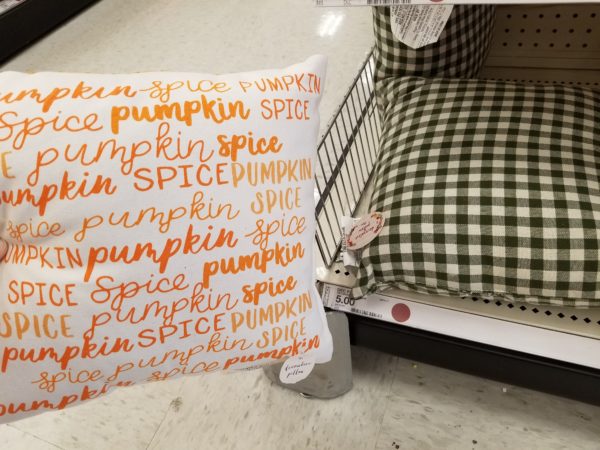 pumpkin spice PUMPKIN
spice pumpkin SPICE
pumpkin spice
pumpkin SPICE PUMPKIN
spice pumpkin SPICE
PUMPKIN pumpkin spice
SPICE spice pumpkin
SPICE pumpkin spice
pumpkin SPICE PUMPKIN
spice pumpkin SPICE
pumpkin spice pumpkin
decorative pillow
5.00